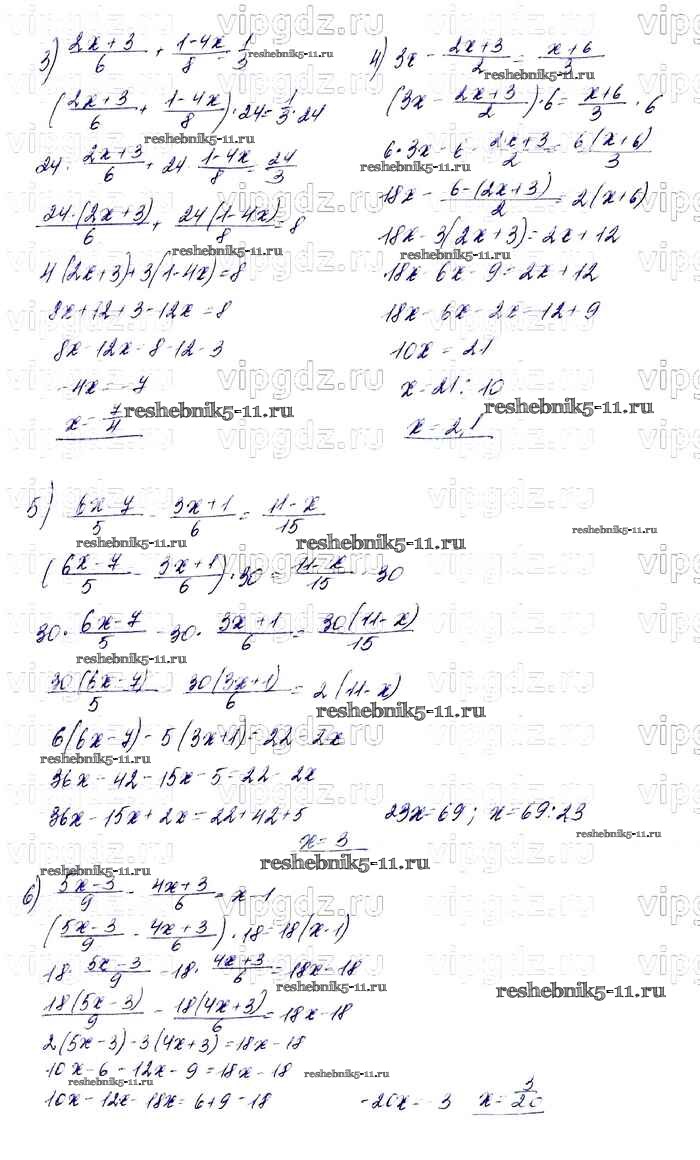 3) (2x+3)/6 + (1-4x)/8 = 1/3
((2x+3)/6 + (1-4x)/8)·24 = 1/3·24
24·(2x+3)/6 + 24·(1-4x)/8 = 24/3
24·(2x+3)/6 + 24(1-4x)/8 = 8
4(2x+3)+3(1-4x)=8
8x+12+3-12x=8
8x-12x=8-12-3
-4x=-7
x=7/4
4) 3x - (2x+3)/2 = (x+6)/3
(3x - (2x+3)/2)·6 = (x+6)/3·6
6·3x - 6·(2x+3)/2 = 6(x+6)/3
18x - 6-(2x+3)/2 = 2(x+6)
18x-3(2x+3)=2x+12
18x-6x-9=2x+12
18x-6x-2x=12+9
10x=21
x=21:10
x=2,1
5) (6x-7)/5 - (3x+1)/6 = (11-x)/15
((6x-7)/5 - (3x+1)/6)·30 = (11-x)/15·30
30·(6x-7)/5 - 30·(3x+1)/6 = 30(11-x)/15
30(6x-7)/5 - 30(3x+1)/6 = 2(11-x)
6(6x-7)-5(3x+1)=22-2x
36x-42-15x-5=22-2x
36x-15x+2x=22+42+5 23x=69; x=69:23
x=3
6) (5x-3)/9 - (4x+3)/6 = x-1
((5x-3)/9 - (4x+3)/6)·18=18(x-1)
18·(5x-3)/9 - 18·(4x+3)/6 = 18x-18
18(5x-3)/9 - 18(4x+3)/6 = 18x-18
2(5x-3)-3(4x+3)=18x-18
10x-6-12x-9=18x-18
10x-12x-18x=6+9-18 -20x=-3 x=3/20
vipgdz.ru
reshebnik5-11.ru